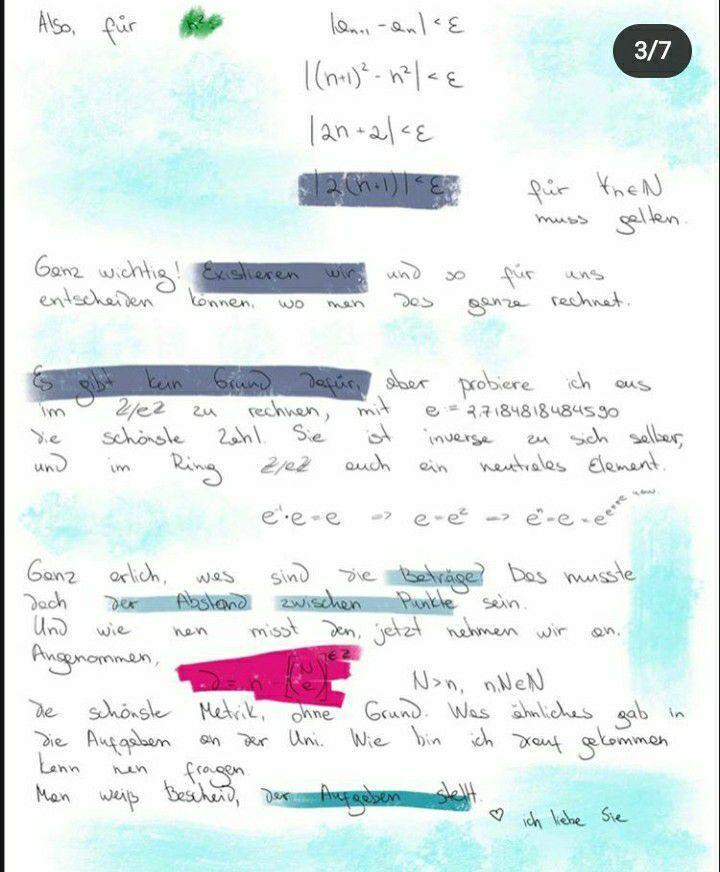 Also, für n²:
|an+1 - an| < ε
3/7
|(n+1)² - n²| < ε
|2n + 2| < ε
|2(n+1)| < ε
für ∀n∈N
muss gelten.
Ganz wichtig! Existieren wir, und so für uns
entscheiden können, wo man das ganze rechnet.
Es gibt kein Grund dafür, aber probiere ich aus
im Z/eZ zu rechnen, mit e = 2,7184818484590
die schönste Zahl. Sie ist inverse zu sich selber,
und im Ring Z/eZ auch ein neutrales Element.
e⁻¹·e = e => e = e² => eⁿ = e = e^e^e^e
Ganz erlich, was sind die Beträge? Das musste
doch der Abstand zwischen Punkte sein.
Und wie nen misst den, jetzt nehmen wir an.
Angenommen,
∂ = n - [(N e)] ∈ Z
N>n, n,N∈N
die schönste Metrik, ohne Grund. Was ähnliches gab in
die Aufgaben an der Uni. Wie bin ich drauf gekommen
kann nen fragen
Man weiß Bescheid, der Aufgaben stellt.
♡ ich liebe Sie